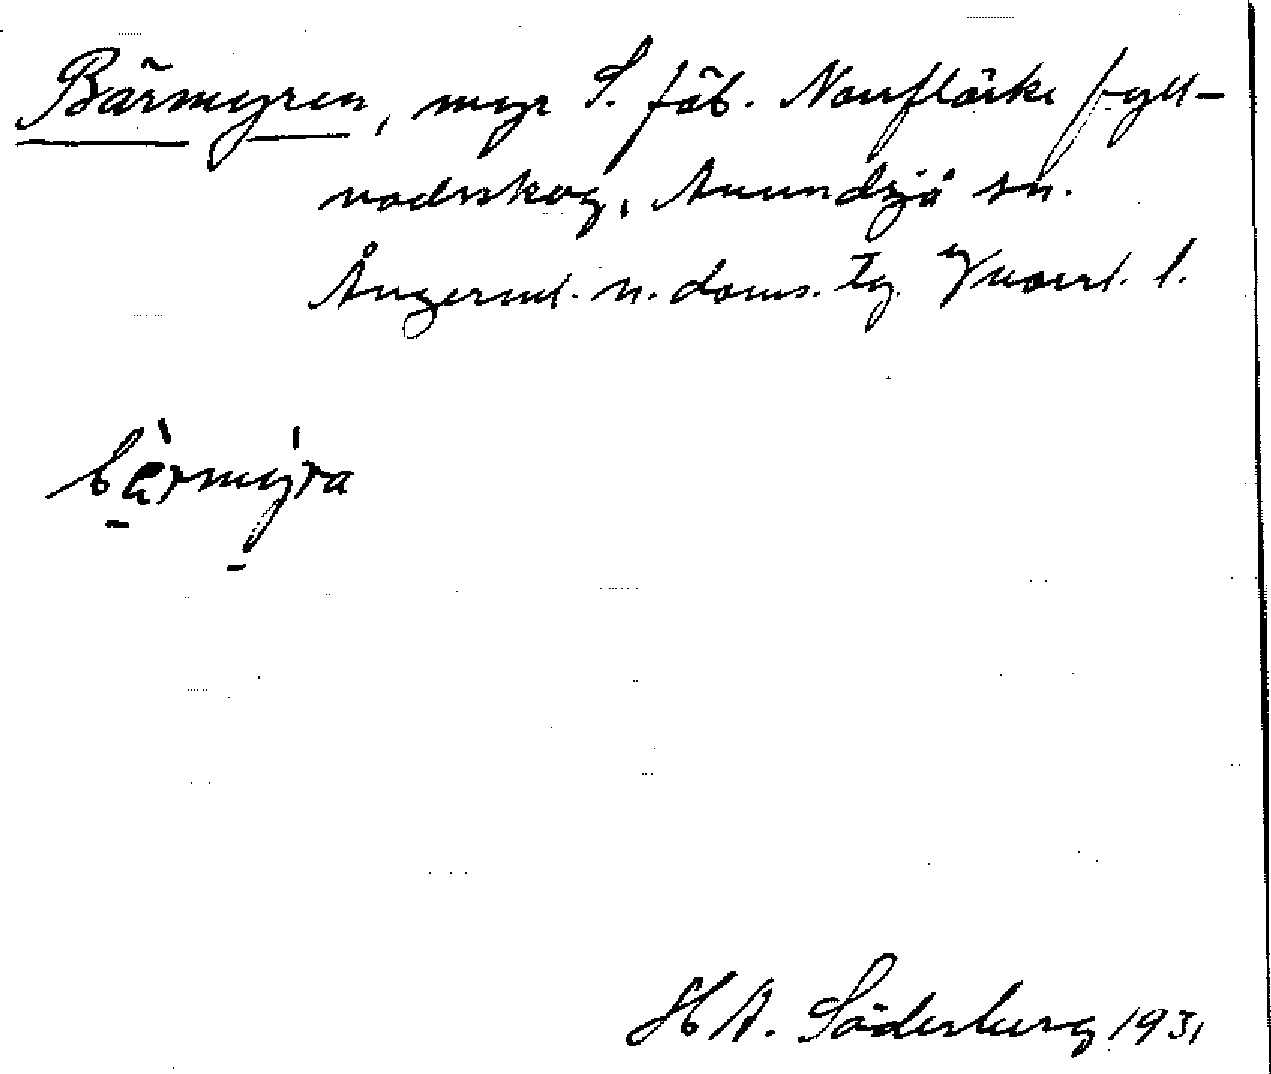 Bärmyren, myr S. fäb. Norrflärke fyll-
vadsskog, Anundsjö sn.
Ångerml. n. doms. tg. Vnorrl. l.
bärmýra
H A. Söderberg 1931